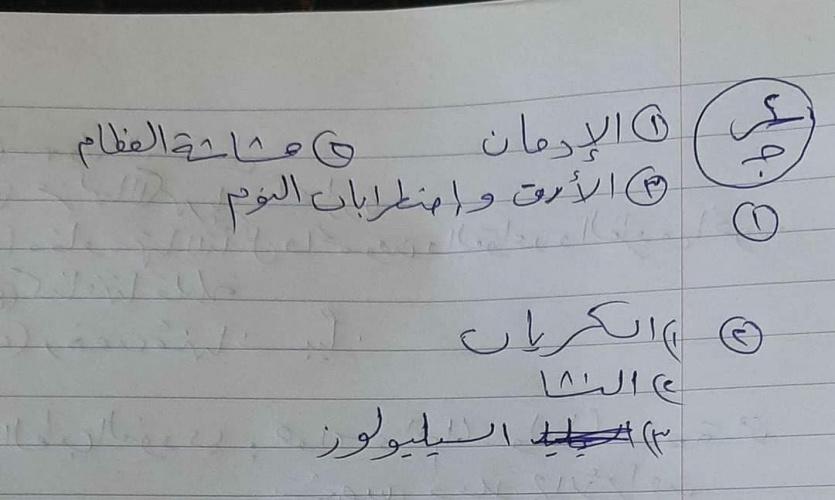 ع
ج
① الإدمان ② هشاشة العظام
③ الأرق واضطرابات النوم
①
② ١) السكريات
٢) النشا
٣) السيليولوز